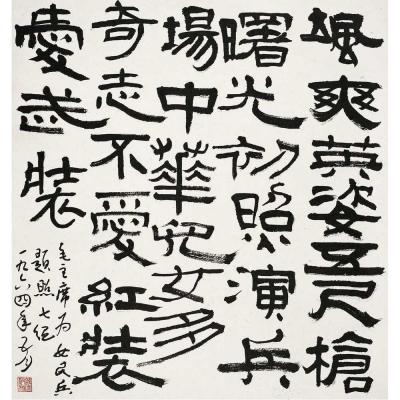 颯爽英姿五尺槍
曙光初照演兵
場中華兒女多
奇志不愛紅裝
愛武裝
毛主席为女民兵
题照七绝
一九六四年五月